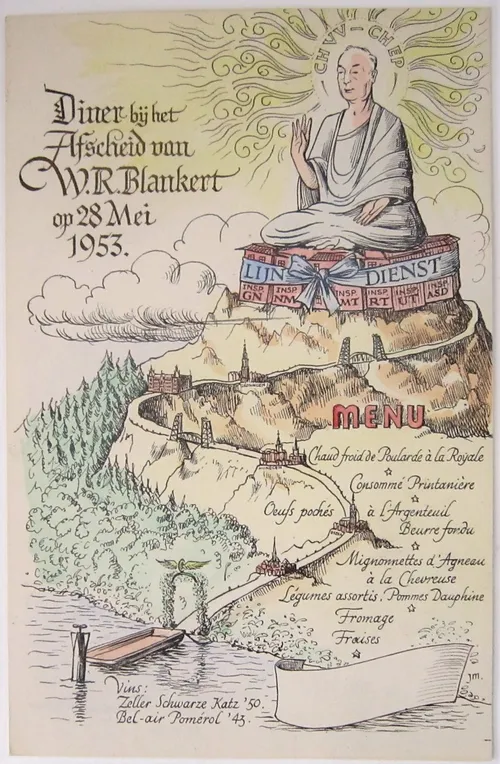 CH VV – CH EP
Diner bij het
Afscheid van
W.R. Blankert
op 28 Mei
1953.
LIJN DIENST
INSP. GN INSP. NM INSP. MT INSP. RT INSP. UT INSP. ASD
MENU
Chaud froid de Poularde à la Royale
Consommé Printanière
Oeufs pochés à l'Argenteuil
Beurre fondu
Mignonnettes d'Agneau
à la Chevreuse
Légumes assortis, Pommes Dauphine
Fromage
Fraises
Vins:
Zeller Schwarze Katz '50.
Bel-air Pomérol '43.
JM.